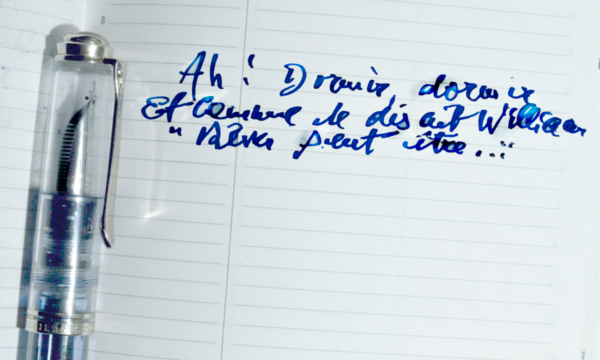 Ah! Dormir, dormir
Et comme le disait William
" Rêver peut être..."